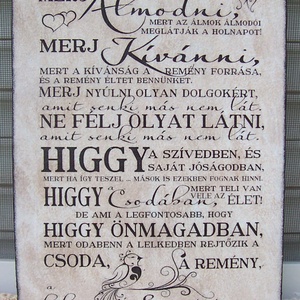 MERJ Álmodni,
MERT AZ ÁLMOK ÁLMODÓI
MEGLÁTJÁK A HOLNAPOT!
MERJ Kívánni,
MERT A KÍVÁNSÁG A REMÉNY FORRÁSA,
ÉS A REMÉNY ÉLTET BENNÜNKET.
MERJ NYÚLNI OLYAN DOLGOKÉRT,
amit senki más nem lát.
NE FÉLJ OLYAT LÁTNI,
amit senki más nem lát.
HIGGY A SZÍVEDBEN, ÉS
SAJÁT JÓSÁGODBAN,
MERT HA ÍGY TESZEL ... MÁSOK IS EZEKBEN FOGNAK HINNI.
HIGGY a Csodában, MERT TELI VAN
VELE AZ ÉLET!
DE AMI A LEGFONTOSABB, HOGY
HIGGY ÖNMAGADBAN,
MERT ODABENN A LELKEDBEN REJTŐZIK A
CSODA, A REMÉNY,
a